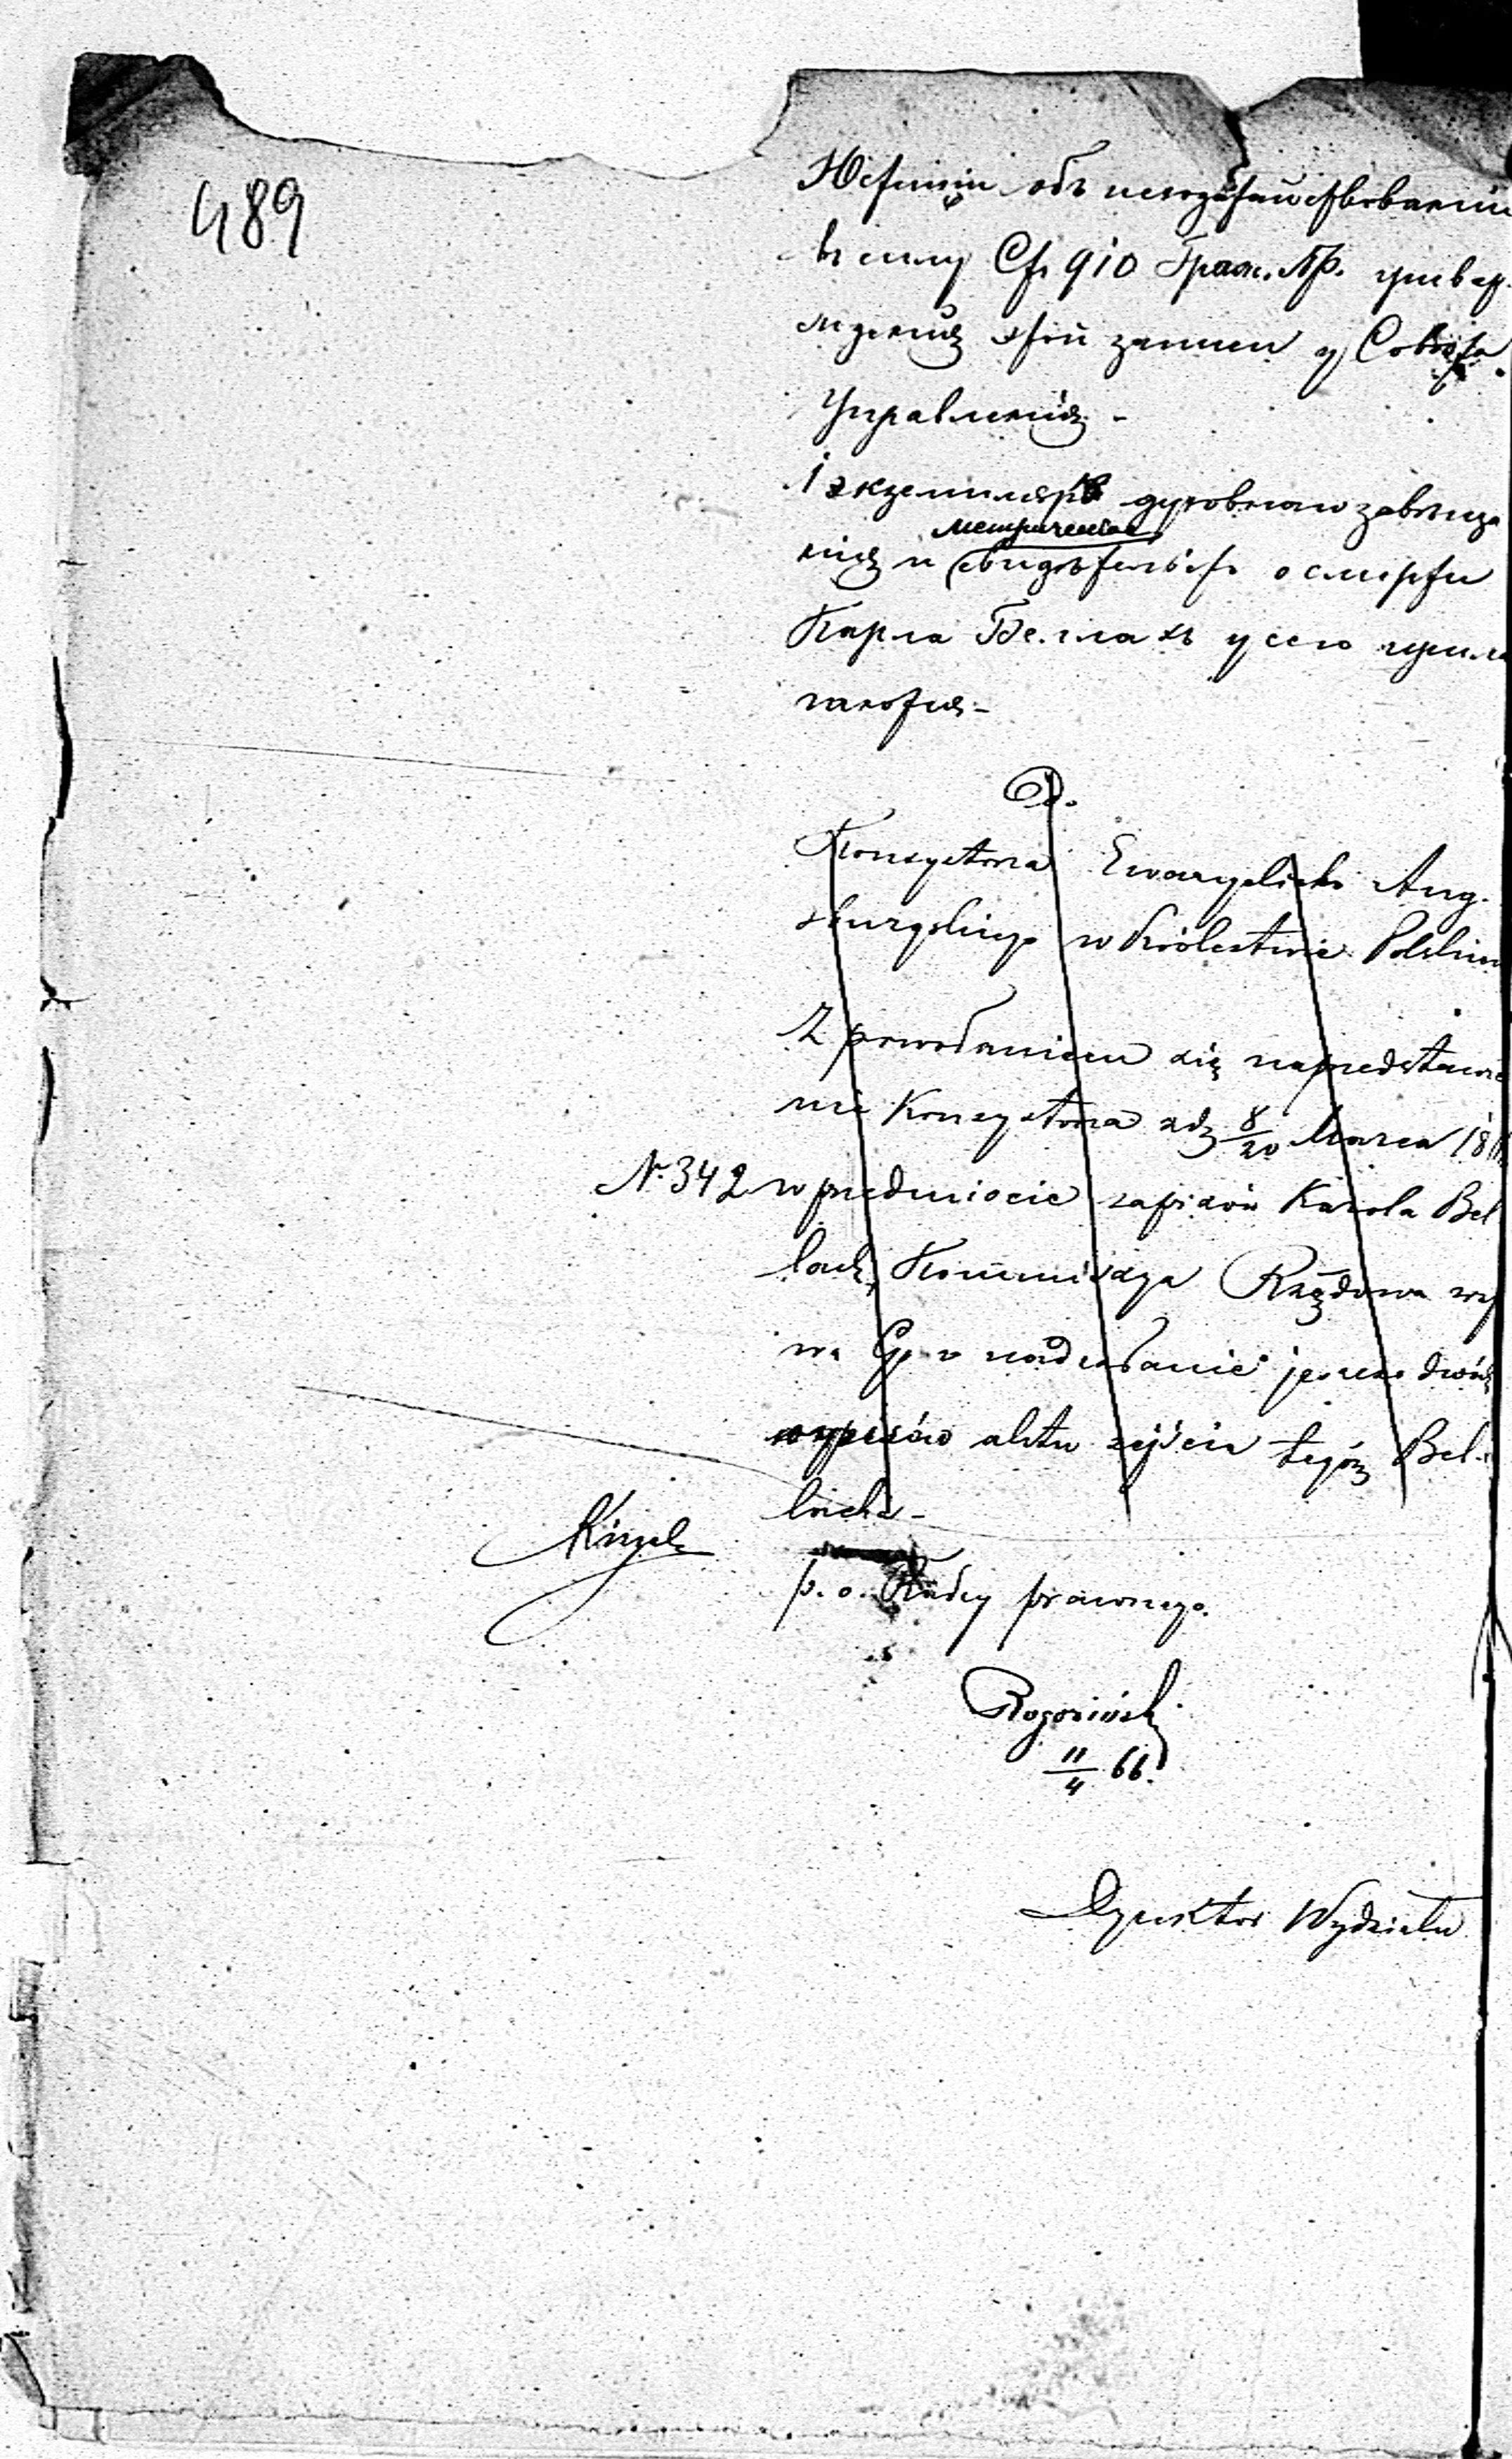 489
Юстиціи объ исходатайствованіи
въ силу Ст. 910 Граж. Пр. утвер-
жденія этой записи у Совѣта
Управленія -
1 экземпляръ духовнаго завѣща
метрическое
нія и свидѣтельств о смерти
Карла Беллахъ у сего прила
гаются -
D.
Konsystorza Ewangelicko Aug-
sburgskiego w Królestwie Polskiem
Z powołaniem się na predstawie
nie Konsystorza z d. 8/20 Marca 18
N. 342 w przedmiocie zapisów Karola Bel
lach, Kommissya Rządowa wzy
wa Go o nadesłanie jeszcze dwóch
wypisów aktu zejścia tegóż Bel-
lacha -
p. o. Radcy prawnego.
11/4 66.
Dyrektor Wydziału